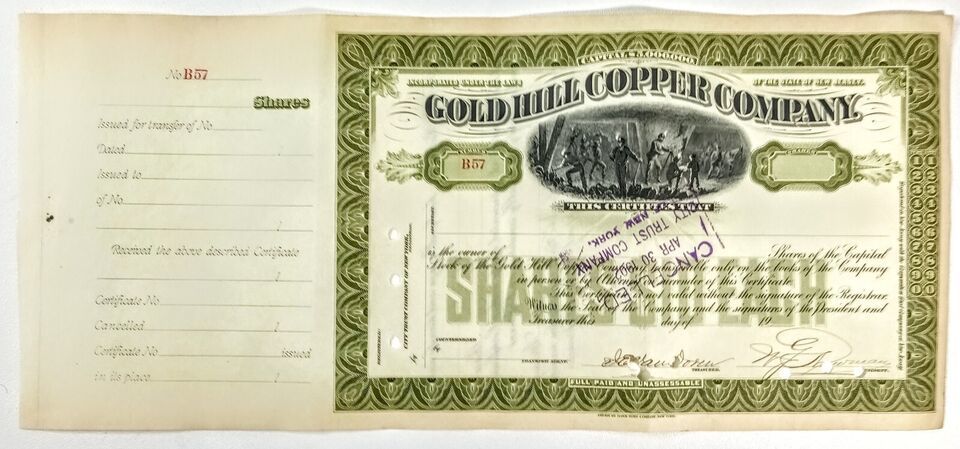 No B57
Shares
Issued for transfer of No
Dated
Issued to
of No
Received the above described Certificate
Certificate No
Cancelled
Certificate No issued
in its place
CAPITAL $5,000,000.
INCORPORATED UNDER THE LAWS OF THE STATE OF NEW JERSEY.
GOLD HILL COPPER COMPANY.
NUMBER
B57
SHARES
THIS CERTIFIES THAT
is the owner of Shares of the Capital
Stock of the Gold Hill Copper Company, transferable only on the books of the Company
in person or by Attorney on surrender of this Certificate.
This Certificate is not valid without the signature of the Registrar.
Witness the Seal of the Company and the signatures of the President and
Treasurer this day of 19
SHARES $ EACH
CANCELLED
APR 30 1902
CITY TRUST COMPANY
OF NEW YORK.
REGISTERED:
CITY TRUST COMPANY OF NEW YORK,
by
REGISTRAR
COUNTERSIGNED
by
TRANSFER AGENT.
TREASURER.
PRESIDENT.
FULL PAID AND UNASSESSABLE
AMERICAN BANK NOTE COMPANY, NEW YORK.